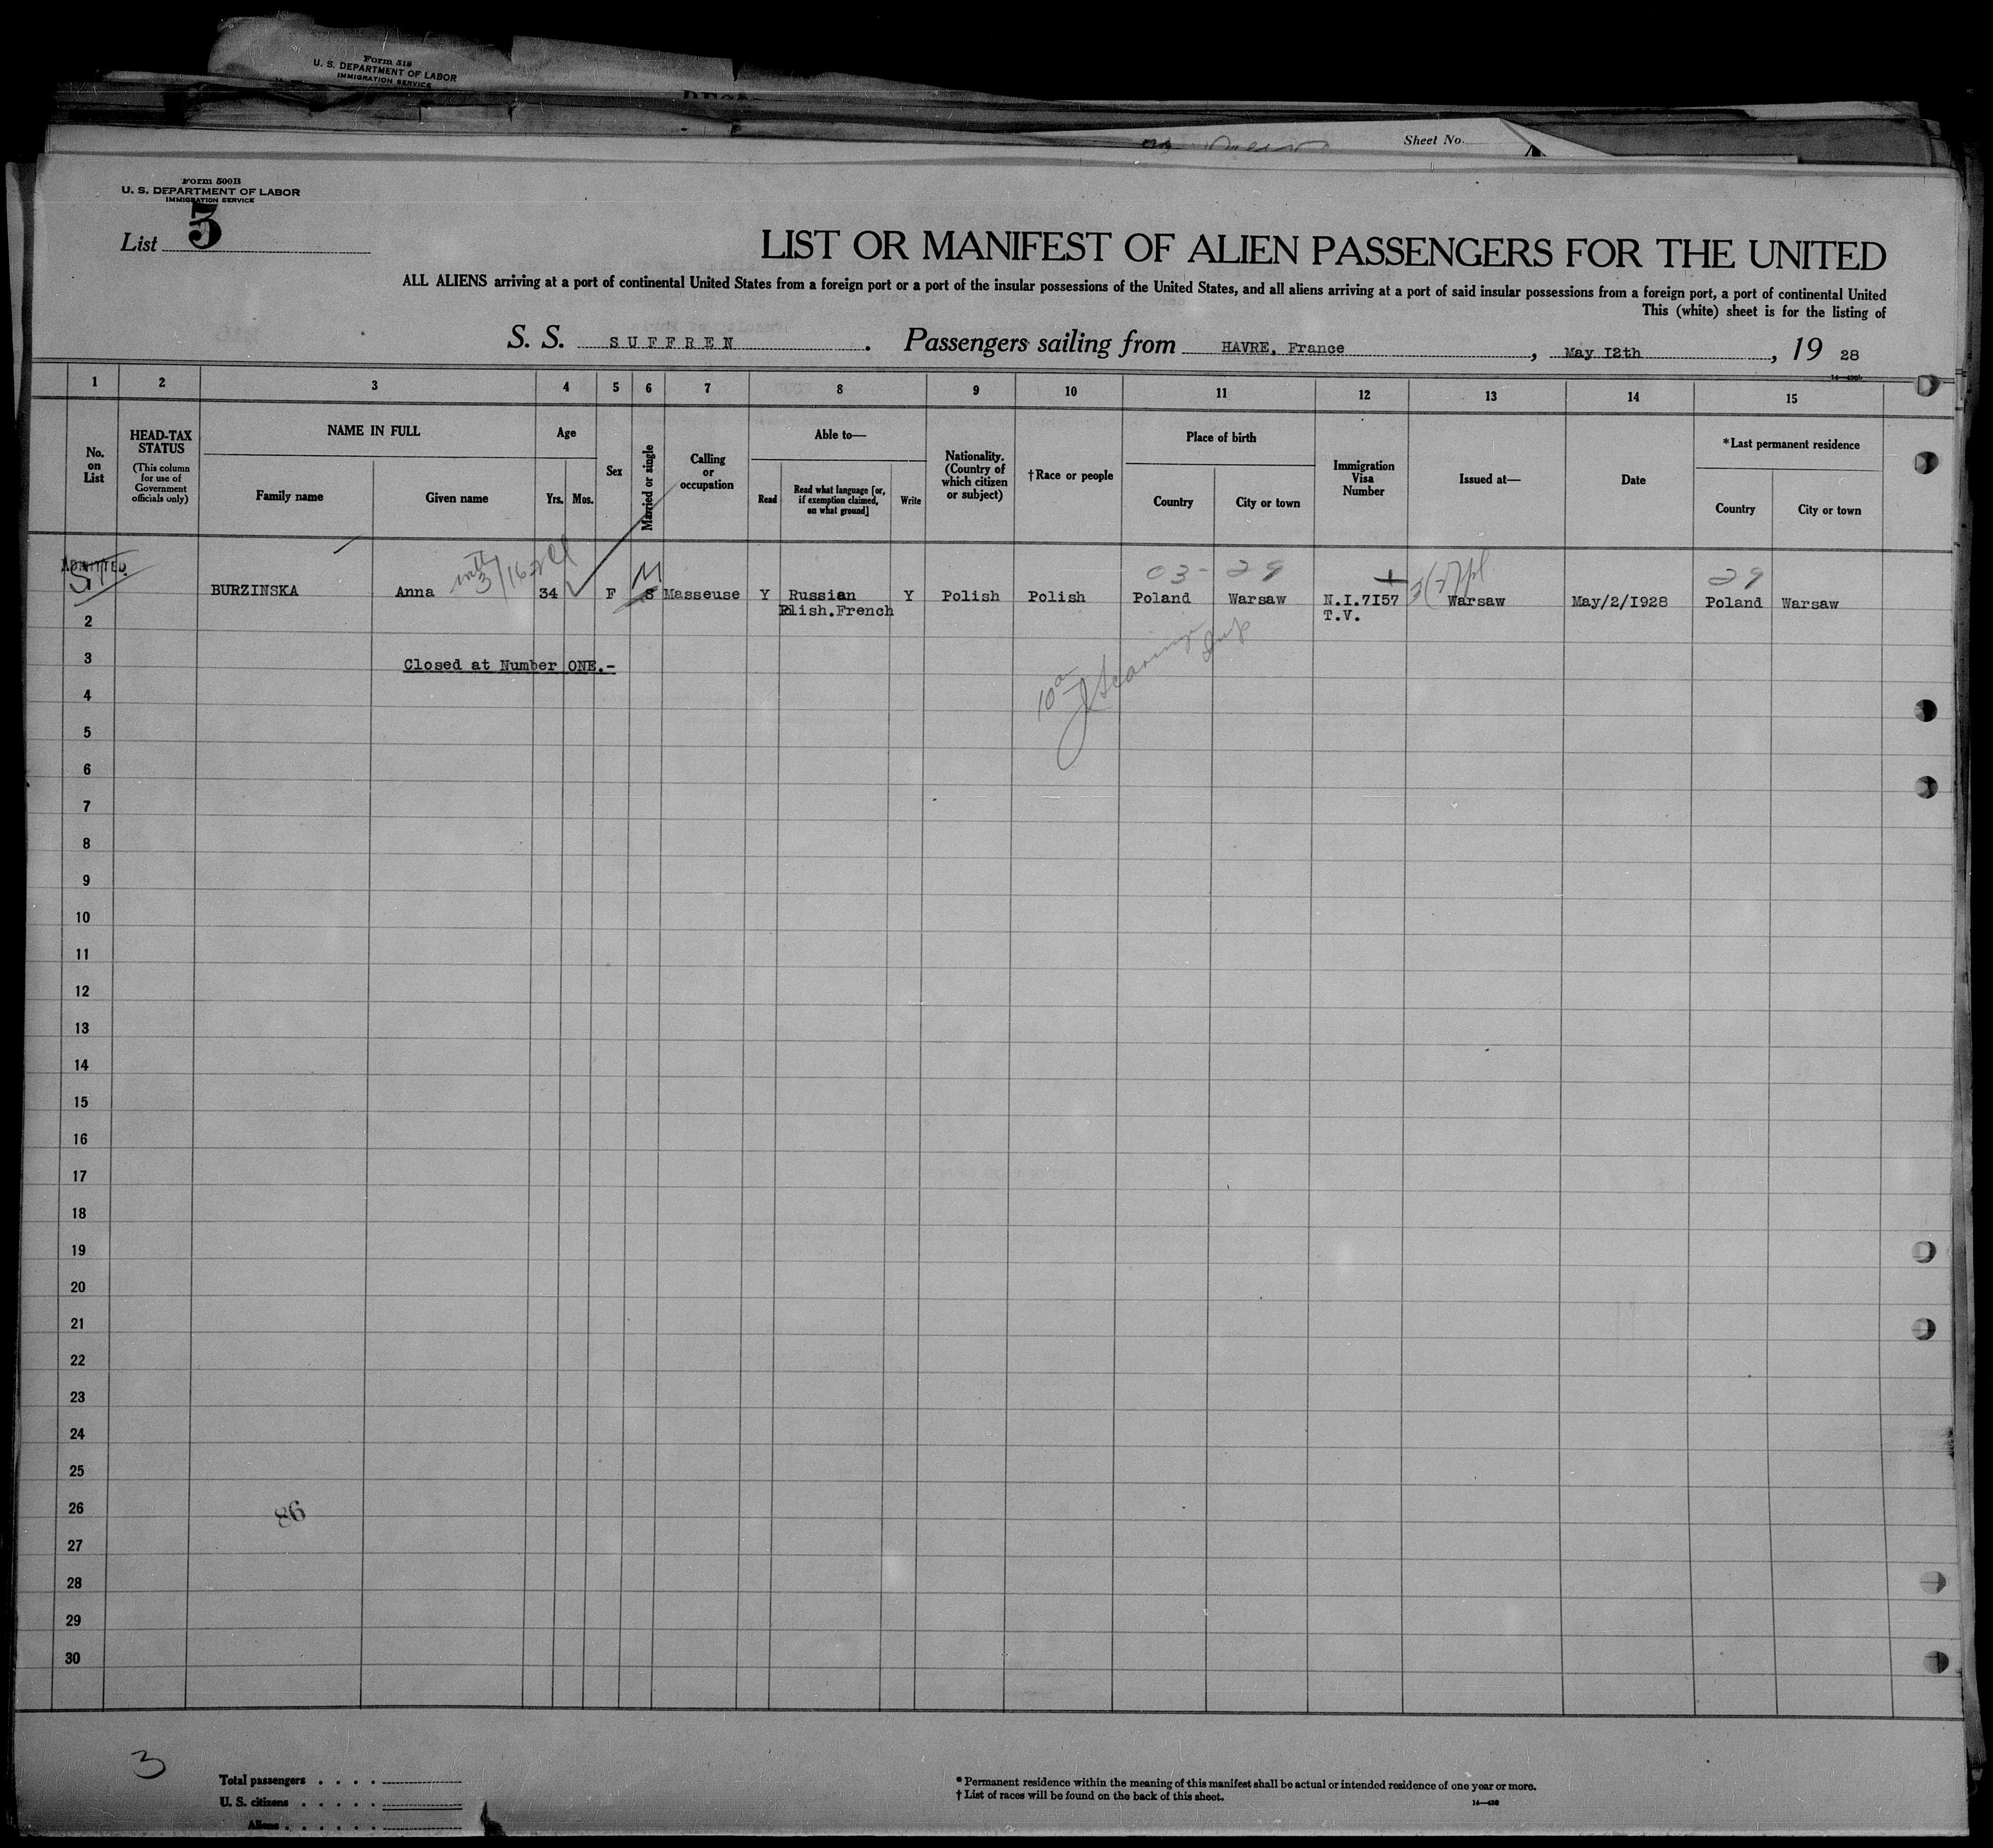 Form 518
U. S. DEPARTMENT OF LABOR
IMMIGRATION SERVICE
Sheet No.
Form 500B
U. S. DEPARTMENT OF LABOR
IMMIGRATION SERVICE
List 5
LIST OR MANIFEST OF ALIEN PASSENGERS FOR THE UNITED
ALL ALIENS arriving at a port of continental United States from a foreign port or a port of the insular possessions of the United States, and all aliens arriving at a port of said insular possessions from a foreign port, a port of continental United
This (white) sheet is for the listing of
S. S. SUFFREN. Passengers sailing from HAVRE, France, May I2th, 19 28
1 2 3 4 5 6 7 8 9 10 11 12 13 14 15
No. on List
HEAD-TAX STATUS
(This column for use of Government officials only)
NAME IN FULL
Family name
Given name
Age
Yrs.
Mos.
Sex
Married or single
Calling or occupation
Able to—
Read
Read what language [or, if exemption claimed, on what ground]
Write
Nationality. (Country of which citizen or subject)
†Race or people
Place of birth
Country
City or town
Immigration Visa Number
Issued at—
Date
*Last permanent residence
Country
City or town
ADMITTED
03- 29 29
1 BURZINSKA Anna 34 F S M Masseuse Y Russian Y Polish Polish Poland Warsaw N.I.7I57 Warsaw May/2/I928 Poland Warsaw
Plish.French T.V.
2
3 Closed at Number ONE.-
4
5
6
7
8
9
10
11
12
13
14
15
16
17
18
19
20
21
22
23
24
25
26
86
27
28
29
30
3
Total passengers . . . .
U. S. citizens . . . . .
Aliens . . . . . .
* Permanent residence within the meaning of this manifest shall be actual or intended residence of one year or more.
† List of races will be found on the back of this sheet.